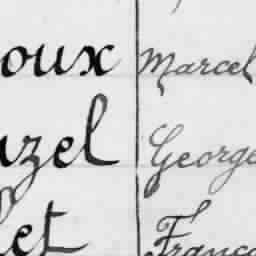 oux Marcel
uzel George
let Franço